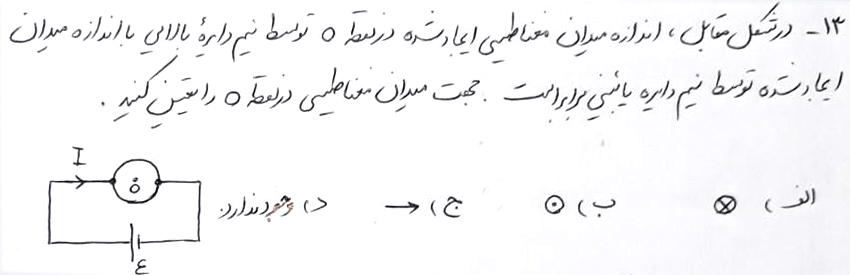 ۱۳- در شکل مقابل، اندازه میدان مغناطیسی ایجاد شده در نقطه O توسط نیم دایرهٔ بالایی با اندازه میدان
ایجاد شده توسط نیم دایره پائینی برابر است. جهت میدان مغناطیسی در نقطه O را تعیین کنید.
الف) ⊗ ب) ⊙ ج) → د) وجود ندارد.
I
O
ε